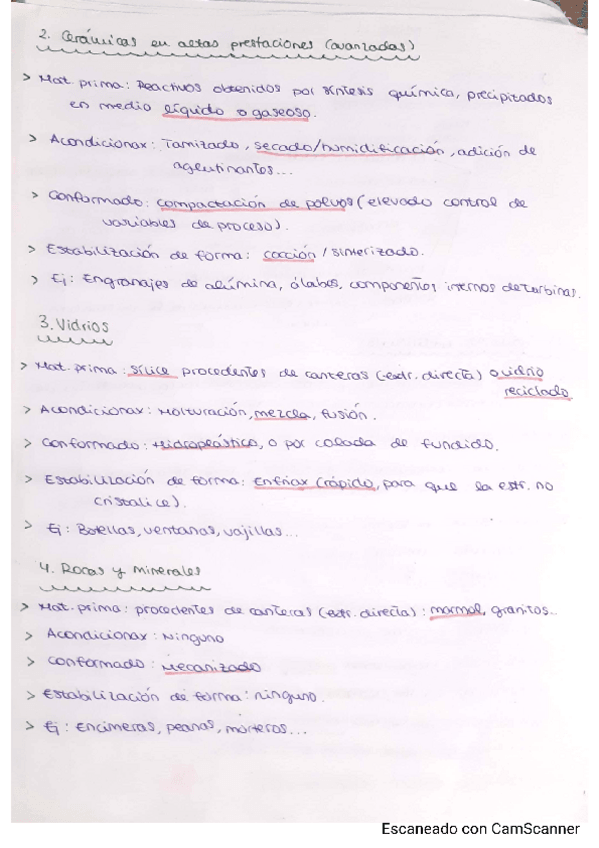 2. Cerámicas en altas prestaciones (avanzadas)
> Mat. prima: Reactivos obtenidos por síntesis química, precipitados
en medio líquido o gaseoso.
> Acondicionar: Tamizado, secado/humidificación, adición de
aglutinantes...
> Conformado: compactación de polvos (elevado control de
variables de proceso).
> Estabilización de forma: cocción / sinterizado.
> Ej: Engranajes de alúmina, álabes, componentes internos de turbinas.
3. Vidrios
> Mat. prima: sílice procedentes de canteras (extr. directa) o vidrio
reciclado
> Acondicionar: Molturación, mezcla, fusión.
> Conformado: Hidroplástico, o por colada de fundido.
> Estabilización de forma: enfriar (rápido, para que la estr. no
cristalice).
> Ej: Botellas, ventanas, vajillas...
4. Rocas y minerales
> Mat. prima: procedentes de canteras (extr. directa): marmol, granitos...
> Acondicionar: Ninguno
> Conformado: Mecanizado
> Estabilización de forma: ninguno.
> Ej: Encimeras, peanas, morteros...
Escaneado con CamScanner